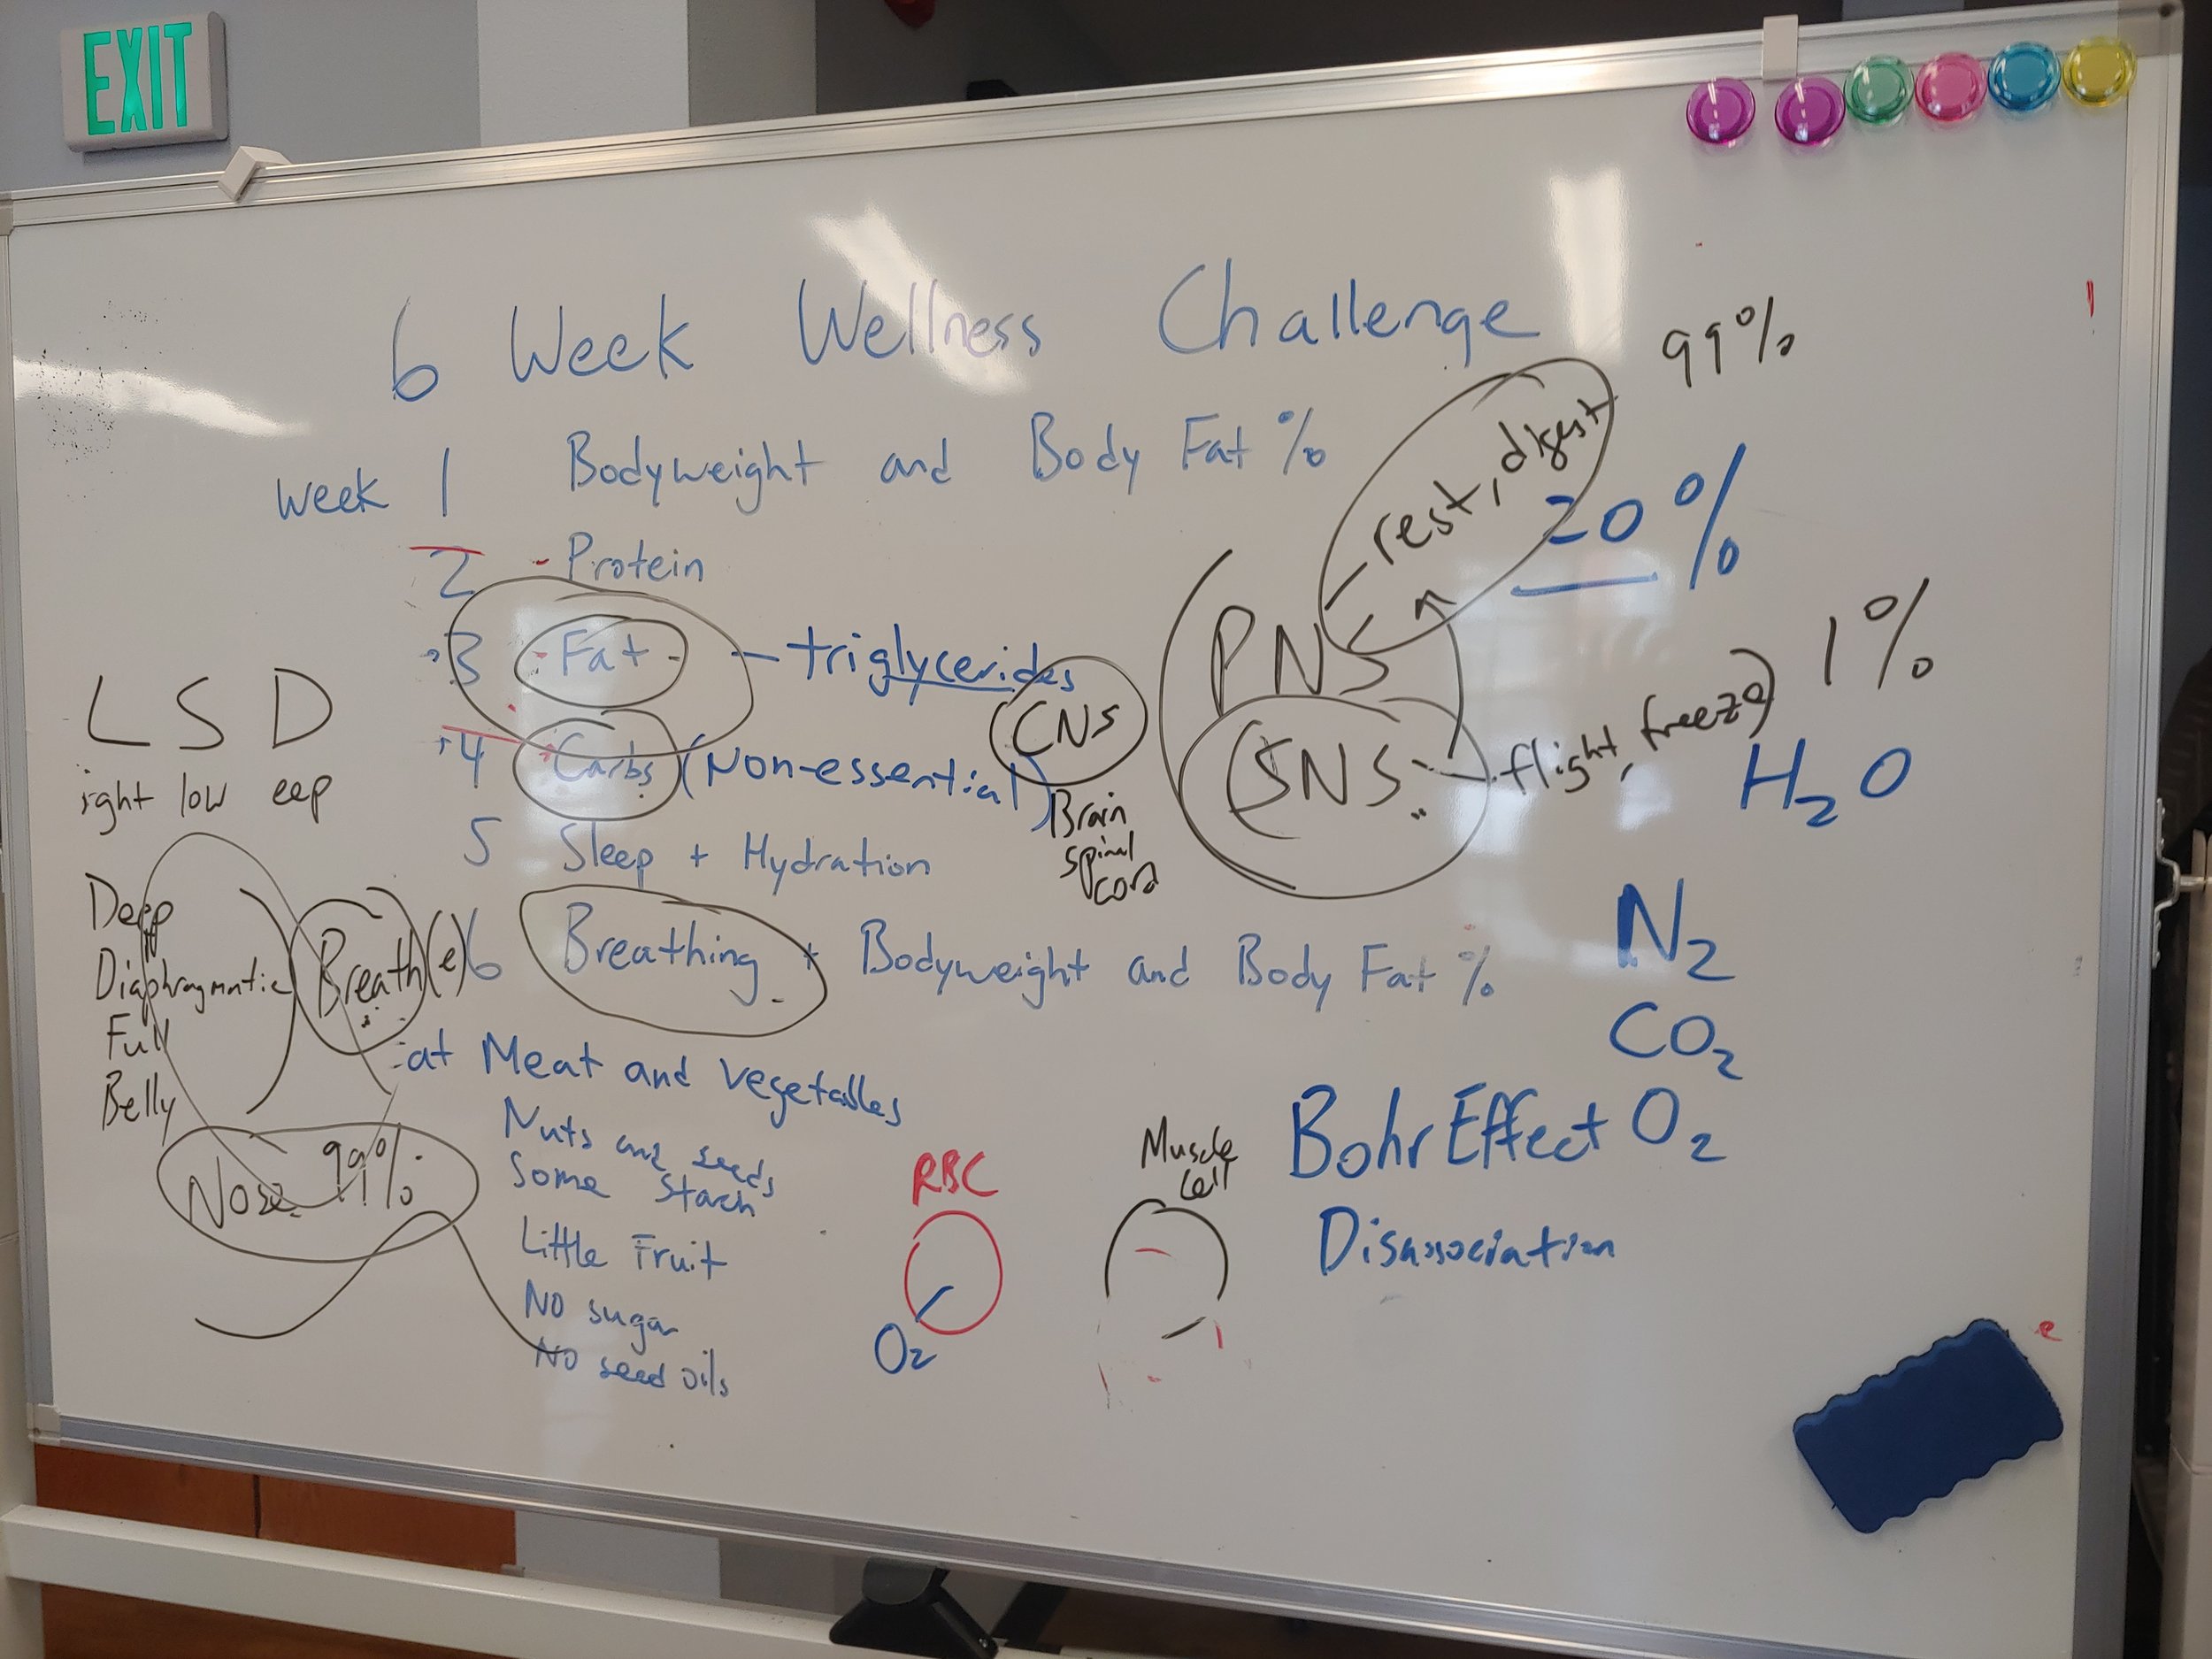 EXIT
6 Week Wellness Challenge
week 1 Bodyweight and Body Fat %
2 - Protein
3 - Fat - triglycerides
4 Carbs (Non-essential)
5 Sleep + Hydration
6 Breathing + Bodyweight and Body Fat %
at Meat and Vegetables
Nuts and seeds
Some Starch
Little Fruit
No sugar
No seed oils
L S D
ight low eep
Deep
Diaphragmatic
Full
Belly
Breath(e)
Nose 99%
CNS
Brain
Spinal
Cord
PNS
- rest, digest 99%
20%
SNS - flight, freeze) 1%
H2O
N2
CO2
Bohr Effect O2
Disassociation
RBC
O2
Muscle
Cell